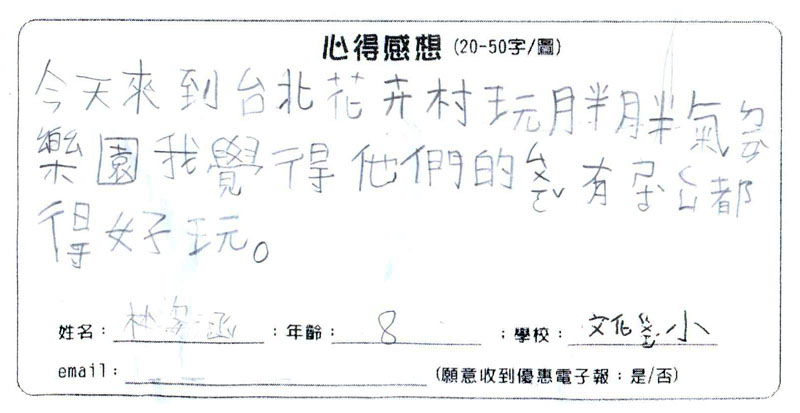 心得感想 (20-50字/圖)
今天來到台北花卉村玩胖胖氣
樂園我覺得他們的ㄙㄨㄛˇ有都
得好玩。
姓名： 林 ；年齡： 8 ；學校： 文化小
email： (願意收到優惠電子報：是/否)